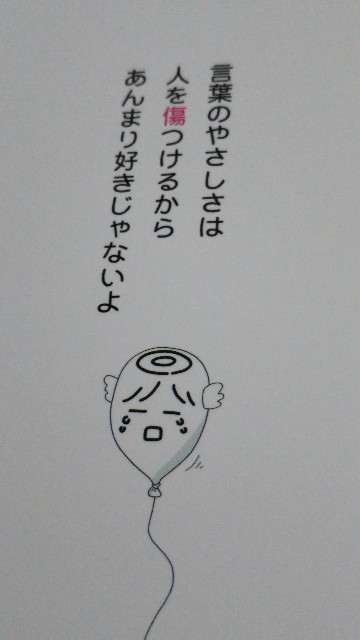 言葉のやさしさは
人を傷つけるから
あんまり好きじゃないよ